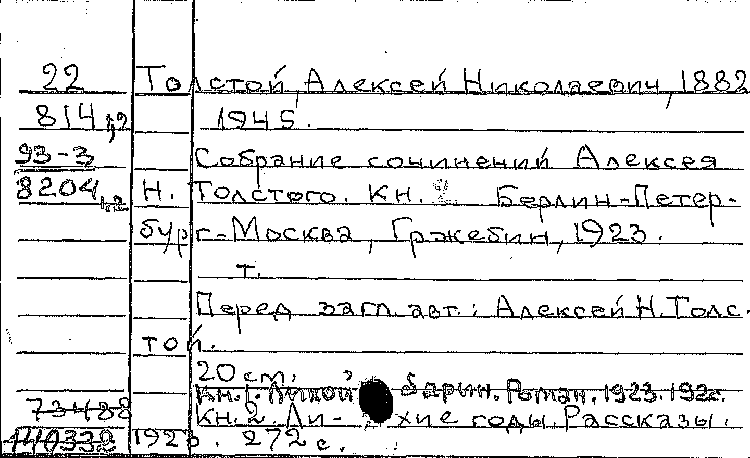 22 Толстой, Алексей Николаевич, 1882
814 1,2 1945.
93-3 Собрание сочинений Алексея
8204 1,2 Н. Толстого. Кн. Берлин-Петер-
бург-Москва, Гржебин, 1923.
т.
Перед загл. авт.: Алексей Н. Толс.
той.
20 см.
Кн. 1. Лихой барин. Роман. 1923. 192с.
73488 Кн. 2. Ли- хие годы. Рассказы.
140332 1923. 272 с.